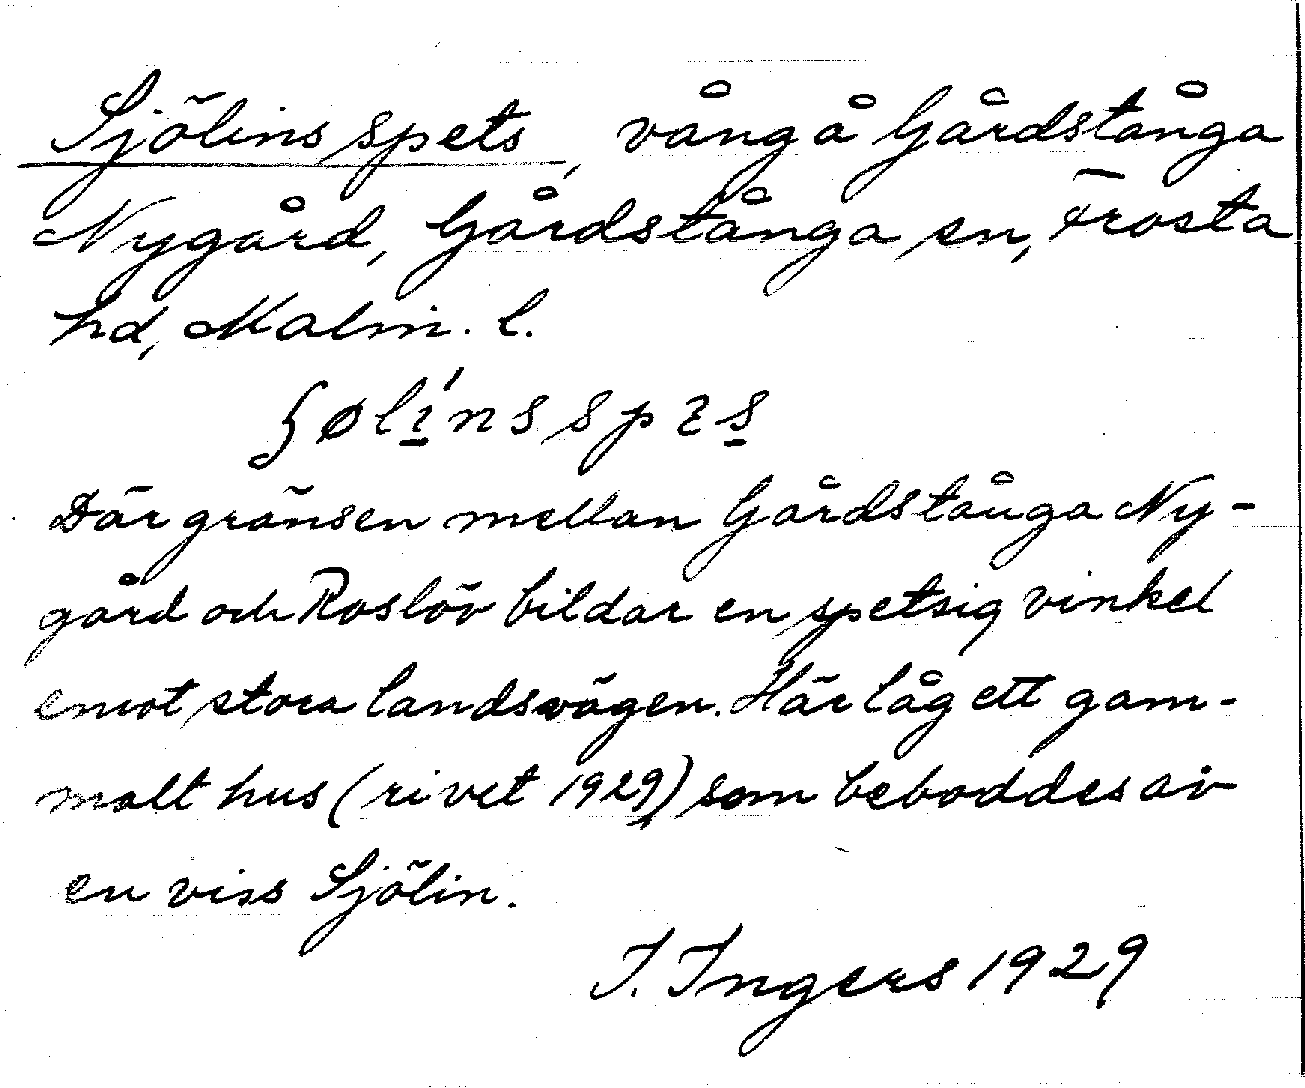 Sjölins spets, vång å Gårdstånga
Nygård, Gårdstånga sn, Frosta
hd, Malm. l.
ʃølíns spɛs
Där gränsen mellan Gårdstånga Ny-
gård och Roslöv bildar en spetsig vinkel
emot stora landsvägen. Här låg ett gam-
malt hus (rivet 1929) som beboddes av
en viss Sjölin.
I. Ingers 1929